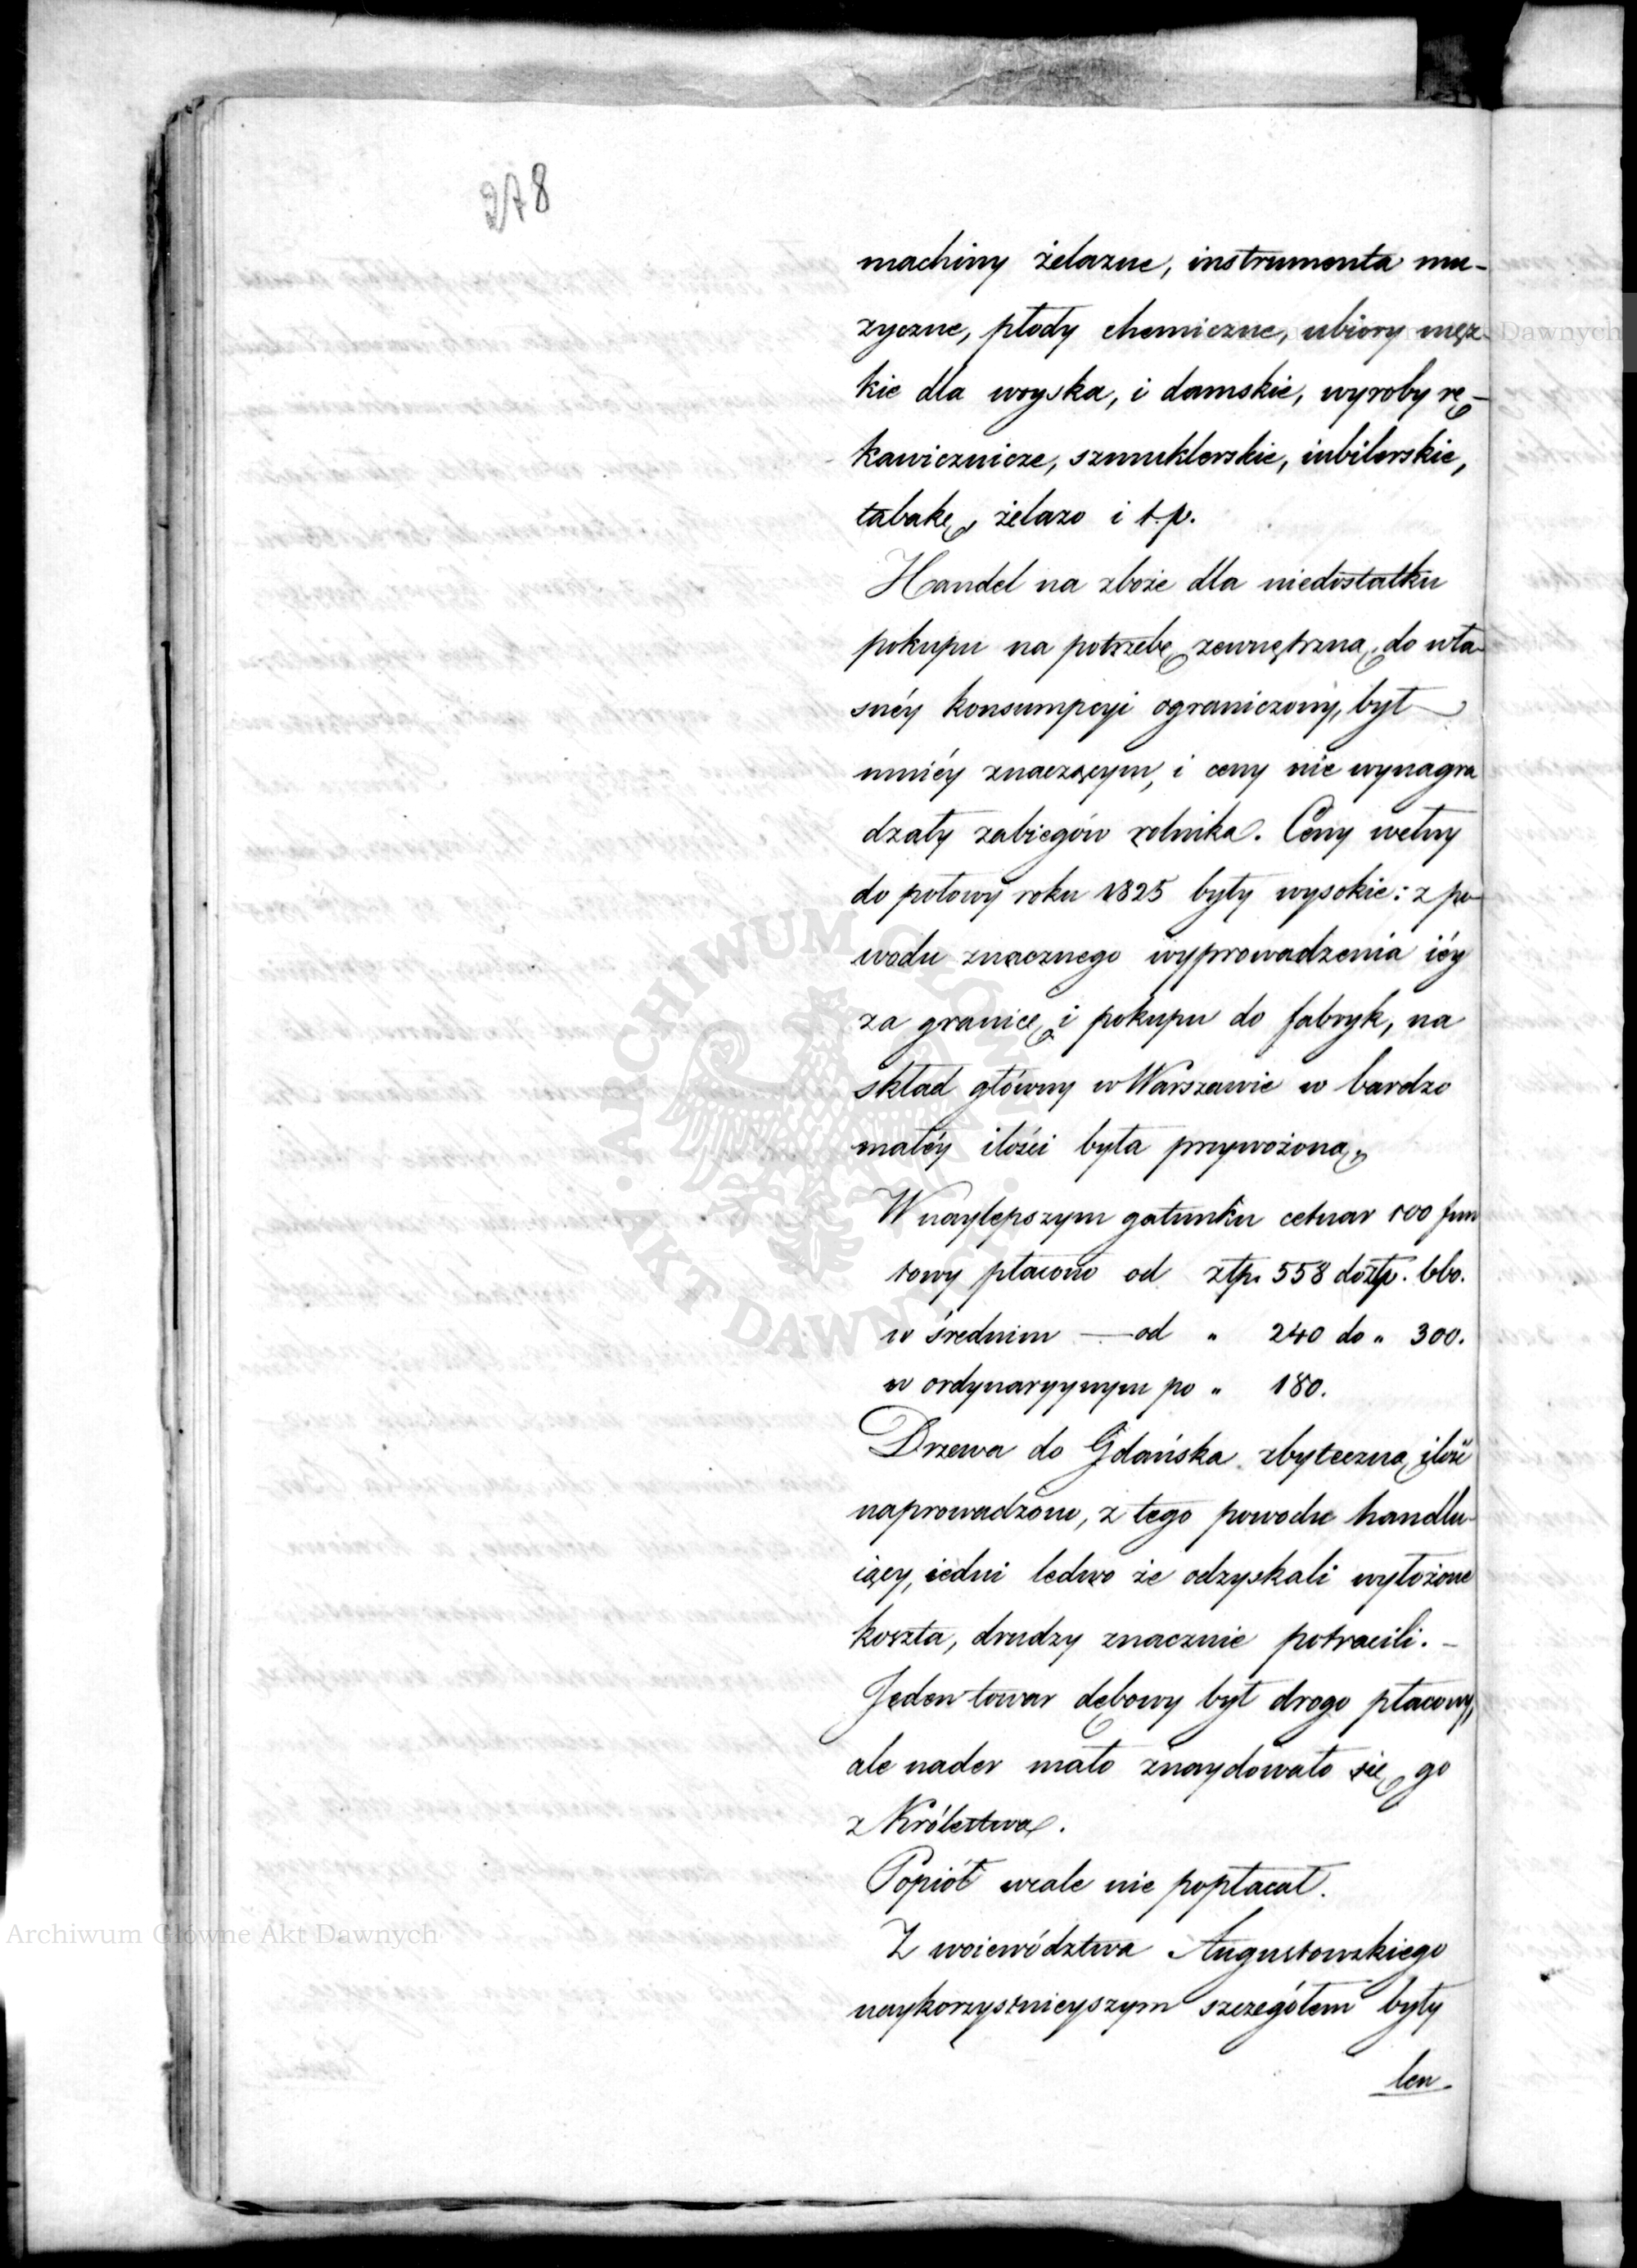 278
machiny żelazne, instrumenta mu-
zyczne, płody chemiczne, ubiory męz-
kie dla woyska, i damskie, wyroby rę-
kawicznicze, szmuklerskie, iubilerskie,
tabakę, żelazo i t.p.
Handel na zboże dla niedostatku
pokupu na potrzebę zewnętrzną, do wła-
snéy konsumpcyi ograniczony, był
mniéy znaczącym, i ceny nie wynagra
dzały zabiegów rolnika. Ceny wełny
do połowy roku 1825 były wysokie: z po-
wodu znacznego wyprowadzenia iéy
za granicę i pokupu do fabryk, na
skład główny w Warszawie w bardzo
małéy ilości była przywożoną,
W naylepszym gatunku cetnar 100 fun
towy płacono od złp. 558 do złp. 660.
w średnim — od " 240 do " 300.
w ordynaryynym po " 180.
Drzewa do Gdańska zbyteczną ilość
naprowadzono, z tego powodu handlu-
iący, iedni ledwo że odzyskali wyłożone
koszta, drudzy znacznie potracili. -
Jeden towar dębowy był drogo płacony,
ale nader mało znaydowało się go
z Królestwa.
Popiół wcale nie popłacał.
Z woiewództwa Augustowskiego
naykorzystnieyszym szczegółem były
len
Archiwum Główne Akt Dawnych
ARCHIWUM GŁÓWNE · AKT DAWNYCH ·
Dawnych